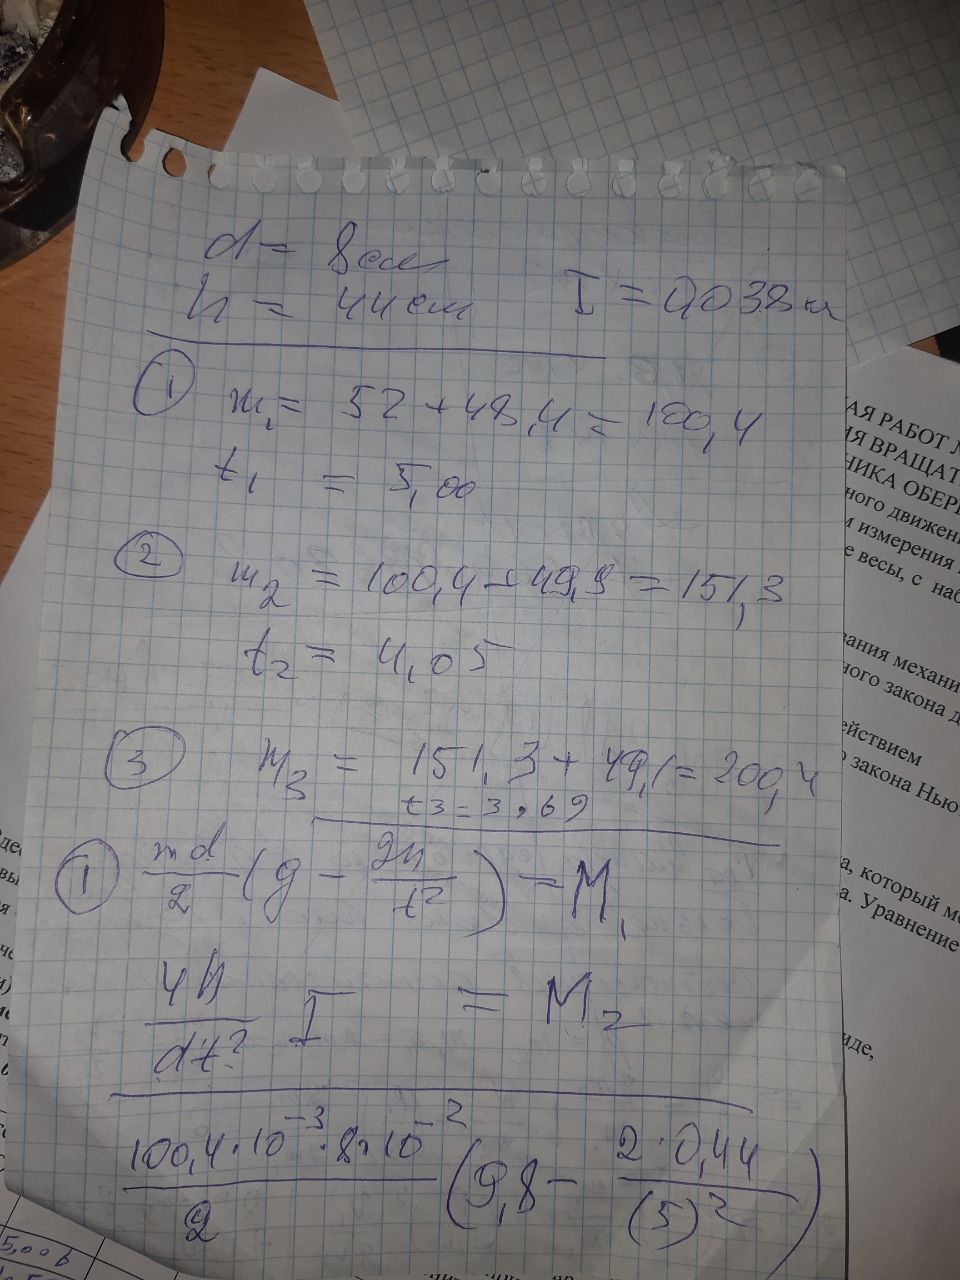 d = 8 см
h = 44 см I = 0,038 м
① m₁ = 52 + 48,4 = 100,4
t₁ = 5,00
② m₂ = 100,4 + 49,9 = 151,3
t₂ = 4,05
③ m₃ = 151,3 + 49,1 = 200,4
t3 = 3,69
① md/2 (g - 2h/t²) = M₁
4h/dt² I = M₂
100,4·10⁻³·8·10⁻²/2 (9,8 - 2·0,44/(5)²)
АЯ РАБОТ
ИЯ ВРАЩАТ
НИКА ОБЕР
ного движен
м измерения
е весы, с наб
вания механи
ного закона д
ействием
о закона Нью
а, который мо
а. Уравнение
иде,
5,006